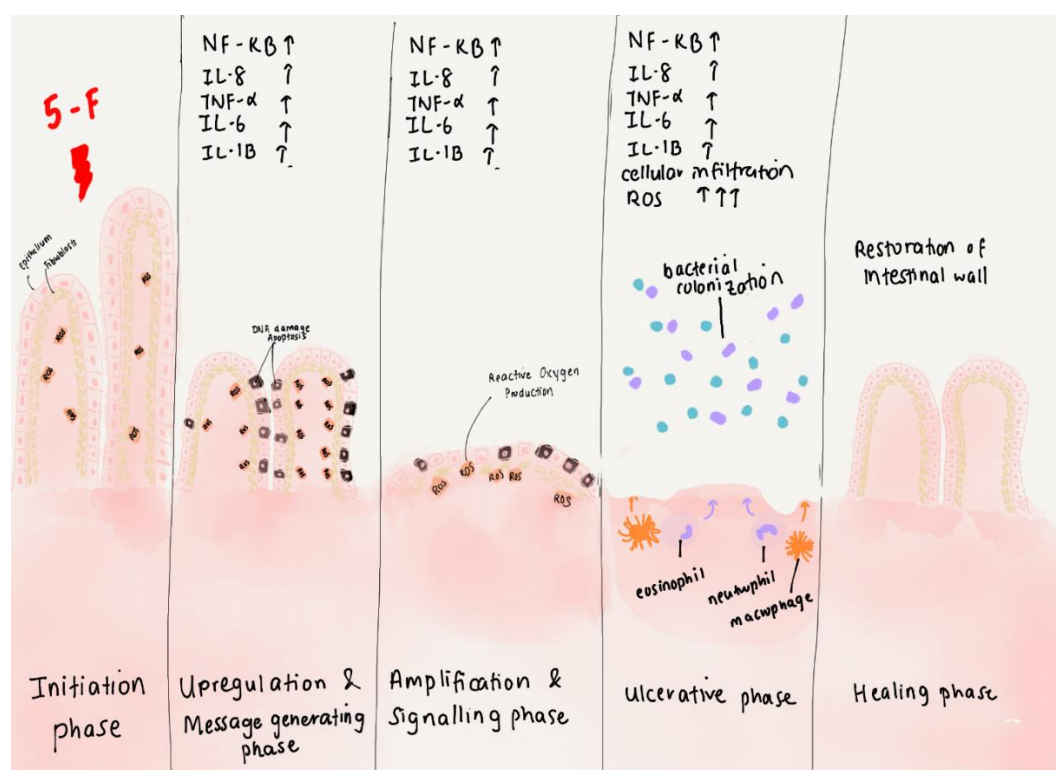 5-F
Epithelium
Fibroblasts
ROS
ROS
ROS
ROS
ROS
ROS
Initiation
phase
NF-KB ↑
IL-8 ↑
TNF-α ↑
IL-6 ↑
IL-1B ↑
DNA damage
Apoptosis
ROS
ROS
ROS
ROS
Upregulation &
Message generating
phase
NF-KB ↑
IL-8 ↑
TNF-α ↑
IL-6 ↑
IL-1B ↑
Reactive Oxygen
Production
ROS
ROS
ROS ROS
ROS
Amplification &
Signalling phase
NF-KB ↑
IL-8 ↑
TNF-α ↑
IL-6 ↑
IL-1B ↑
cellular infiltration
ROS ↑↑↑
bacterial
colonization
eosinophil
neutrophil
macrophage
ulcerative phase
Restoration of
Intestinal wall
Healing phase